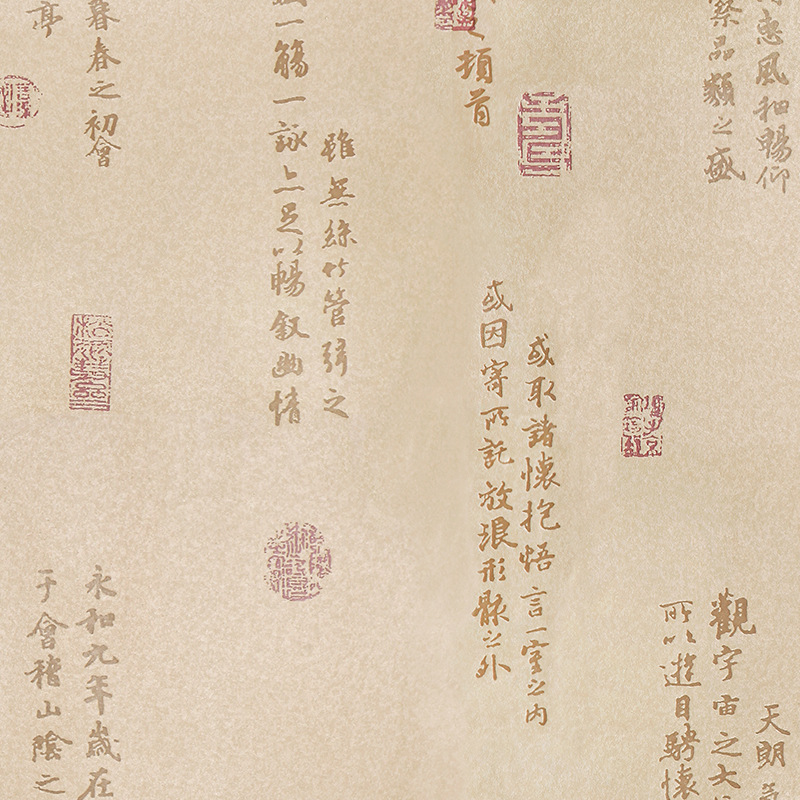 惠風和暢仰
察品類之盛
之頓首
雖無絲竹管弦之
一觴一詠亦足以暢叙幽情
暮春之初會
亭
或取諸懷抱悟言一室之內
或因寄所託放浪形骸之外
天朗
觀宇宙之大
所以遊目騁懷
永和九年歲在
于會稽山陰之